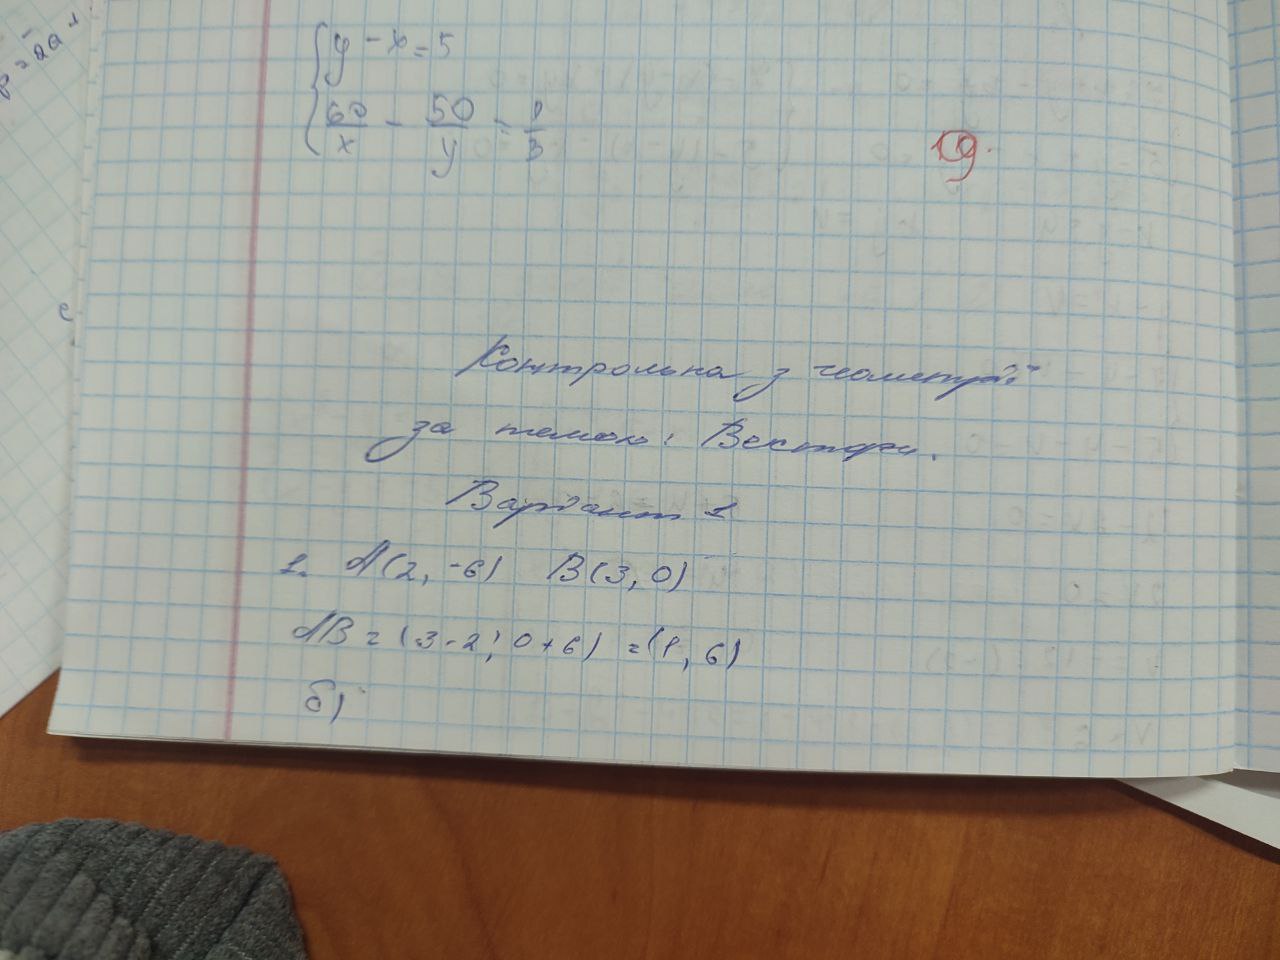 y - x = 5
60/x - 50/y = 1/3
19.
Контрольна з геометрії
за темою: Вектори.
Варіант 1
1. A(2, -6) B(3, 0)
AB = (3-2; 0+6) = (1, 6)
б)